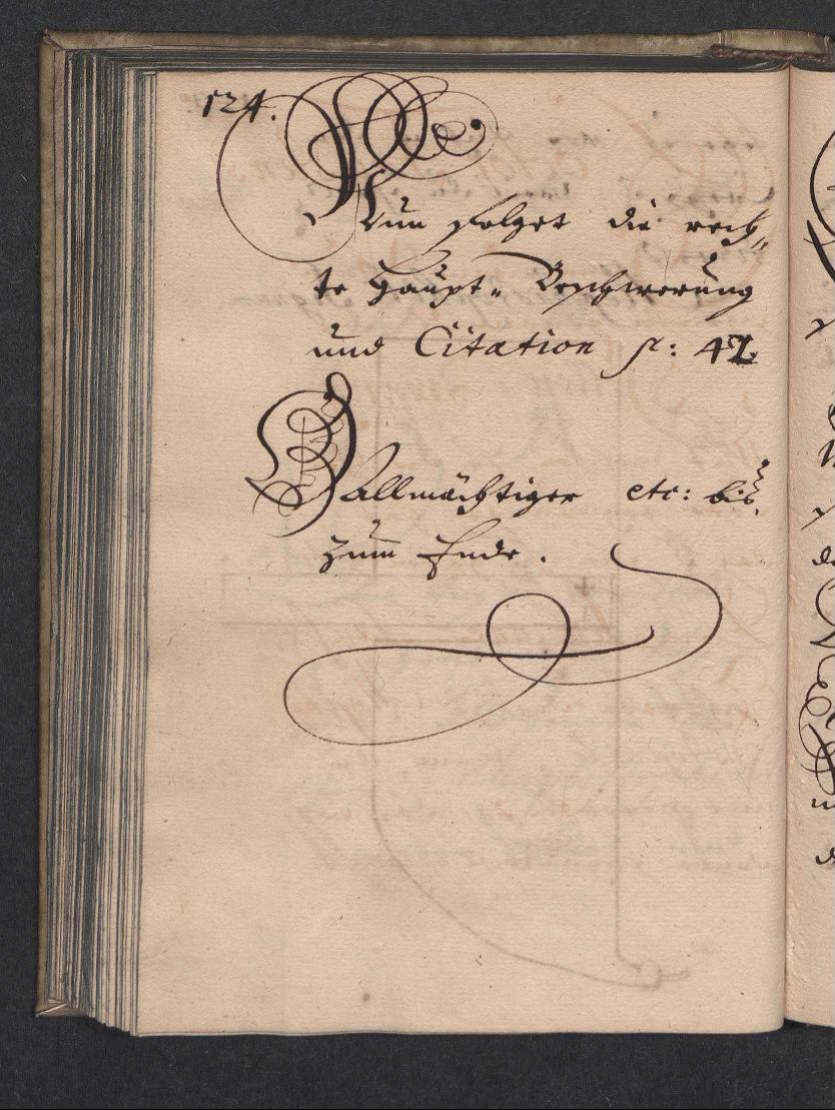 124.
Nun folget die rech„
te Haupt„ Beschwerung
und Citation p: 42
O allmächtiger etc: bis
zum Ende.